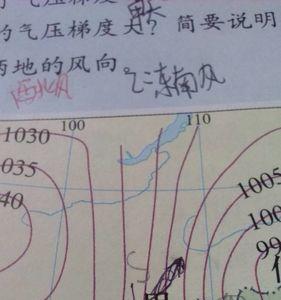 的气压梯度大？简要说明
两地的风向
西北风
乙：东南风
100
110
1030
035
40
1005
100
99